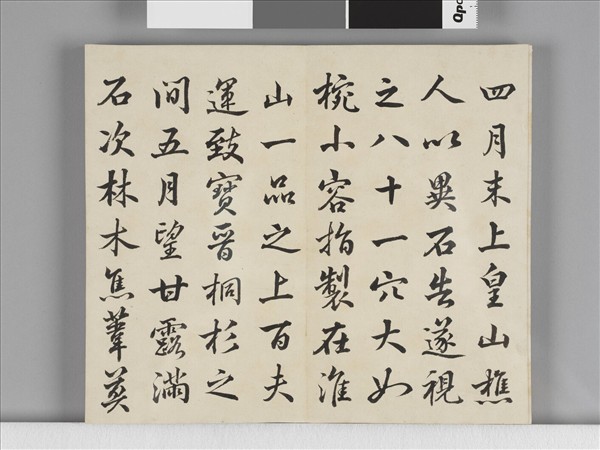 四月末上皇山樵
人以異石告遂視
之八十一穴大如
椀小容指製在淮
山一品之上百夫
運致寶晉桐杉之
間五月望甘露滿
石次林木焦葦莫